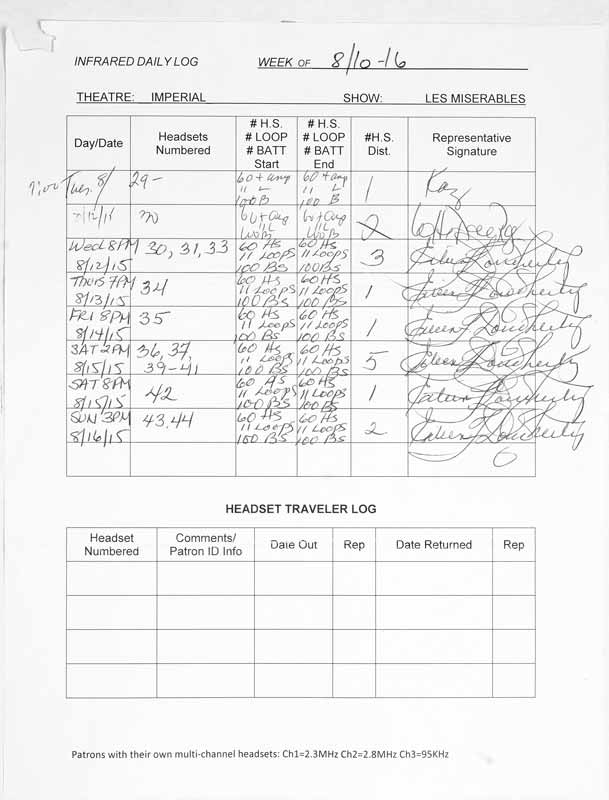 INFRARED DAILY LOG WEEK OF 8/10-16
THEATRE: IMPERIAL SHOW: LES MISERABLES
Day/Date Headsets Numbered # H.S. # LOOP # BATT Start # H.S. # LOOP # BATT End #H.S. Dist. Representative Signature
Tues. 8/ 29- 60 + amp 11 L 100 B 60 + amp 11 L 100 B 1 Kay
60 + amp 11 L 100 B 60 + amp 11 L 100 B 2
WED 8PM 8/12/15 30, 31, 33 60 HS 11 LOOPS 100 BS 60 HS 11 LOOPS 100 BS 3 Eileen Dougherty
THURS 7PM 8/13/15 34 60 HS 11 LOOPS 100 BS 60 HS 11 LOOPS 100 BS 1 Eileen Dougherty
FRI 8PM 8/14/15 35 60 HS 11 LOOPS 100 BS 60 HS 11 LOOPS 100 BS 1 Eileen Dougherty
SAT 2PM 8/15/15 36, 37, 39-41 60 HS 11 LOOPS 100 BS 60 HS 11 LOOPS 100 BS 5 Eileen Dougherty
SAT 8PM 8/15/15 42 60 HS 11 LOOPS 100 BS 60 HS 11 LOOPS 100 BS 1 Eileen Dougherty
SUN 3PM 8/16/15 43,44 60 HS 11 LOOPS 100 BS 60 HS 11 LOOPS 100 BS 2 Eileen Dougherty
HEADSET TRAVELER LOG
Headset Numbered Comments/ Patron ID Info Date Out Rep Date Returned Rep
Patrons with their own multi-channel headsets: Ch1=2.3MHz Ch2=2.8MHz Ch3=95KHz